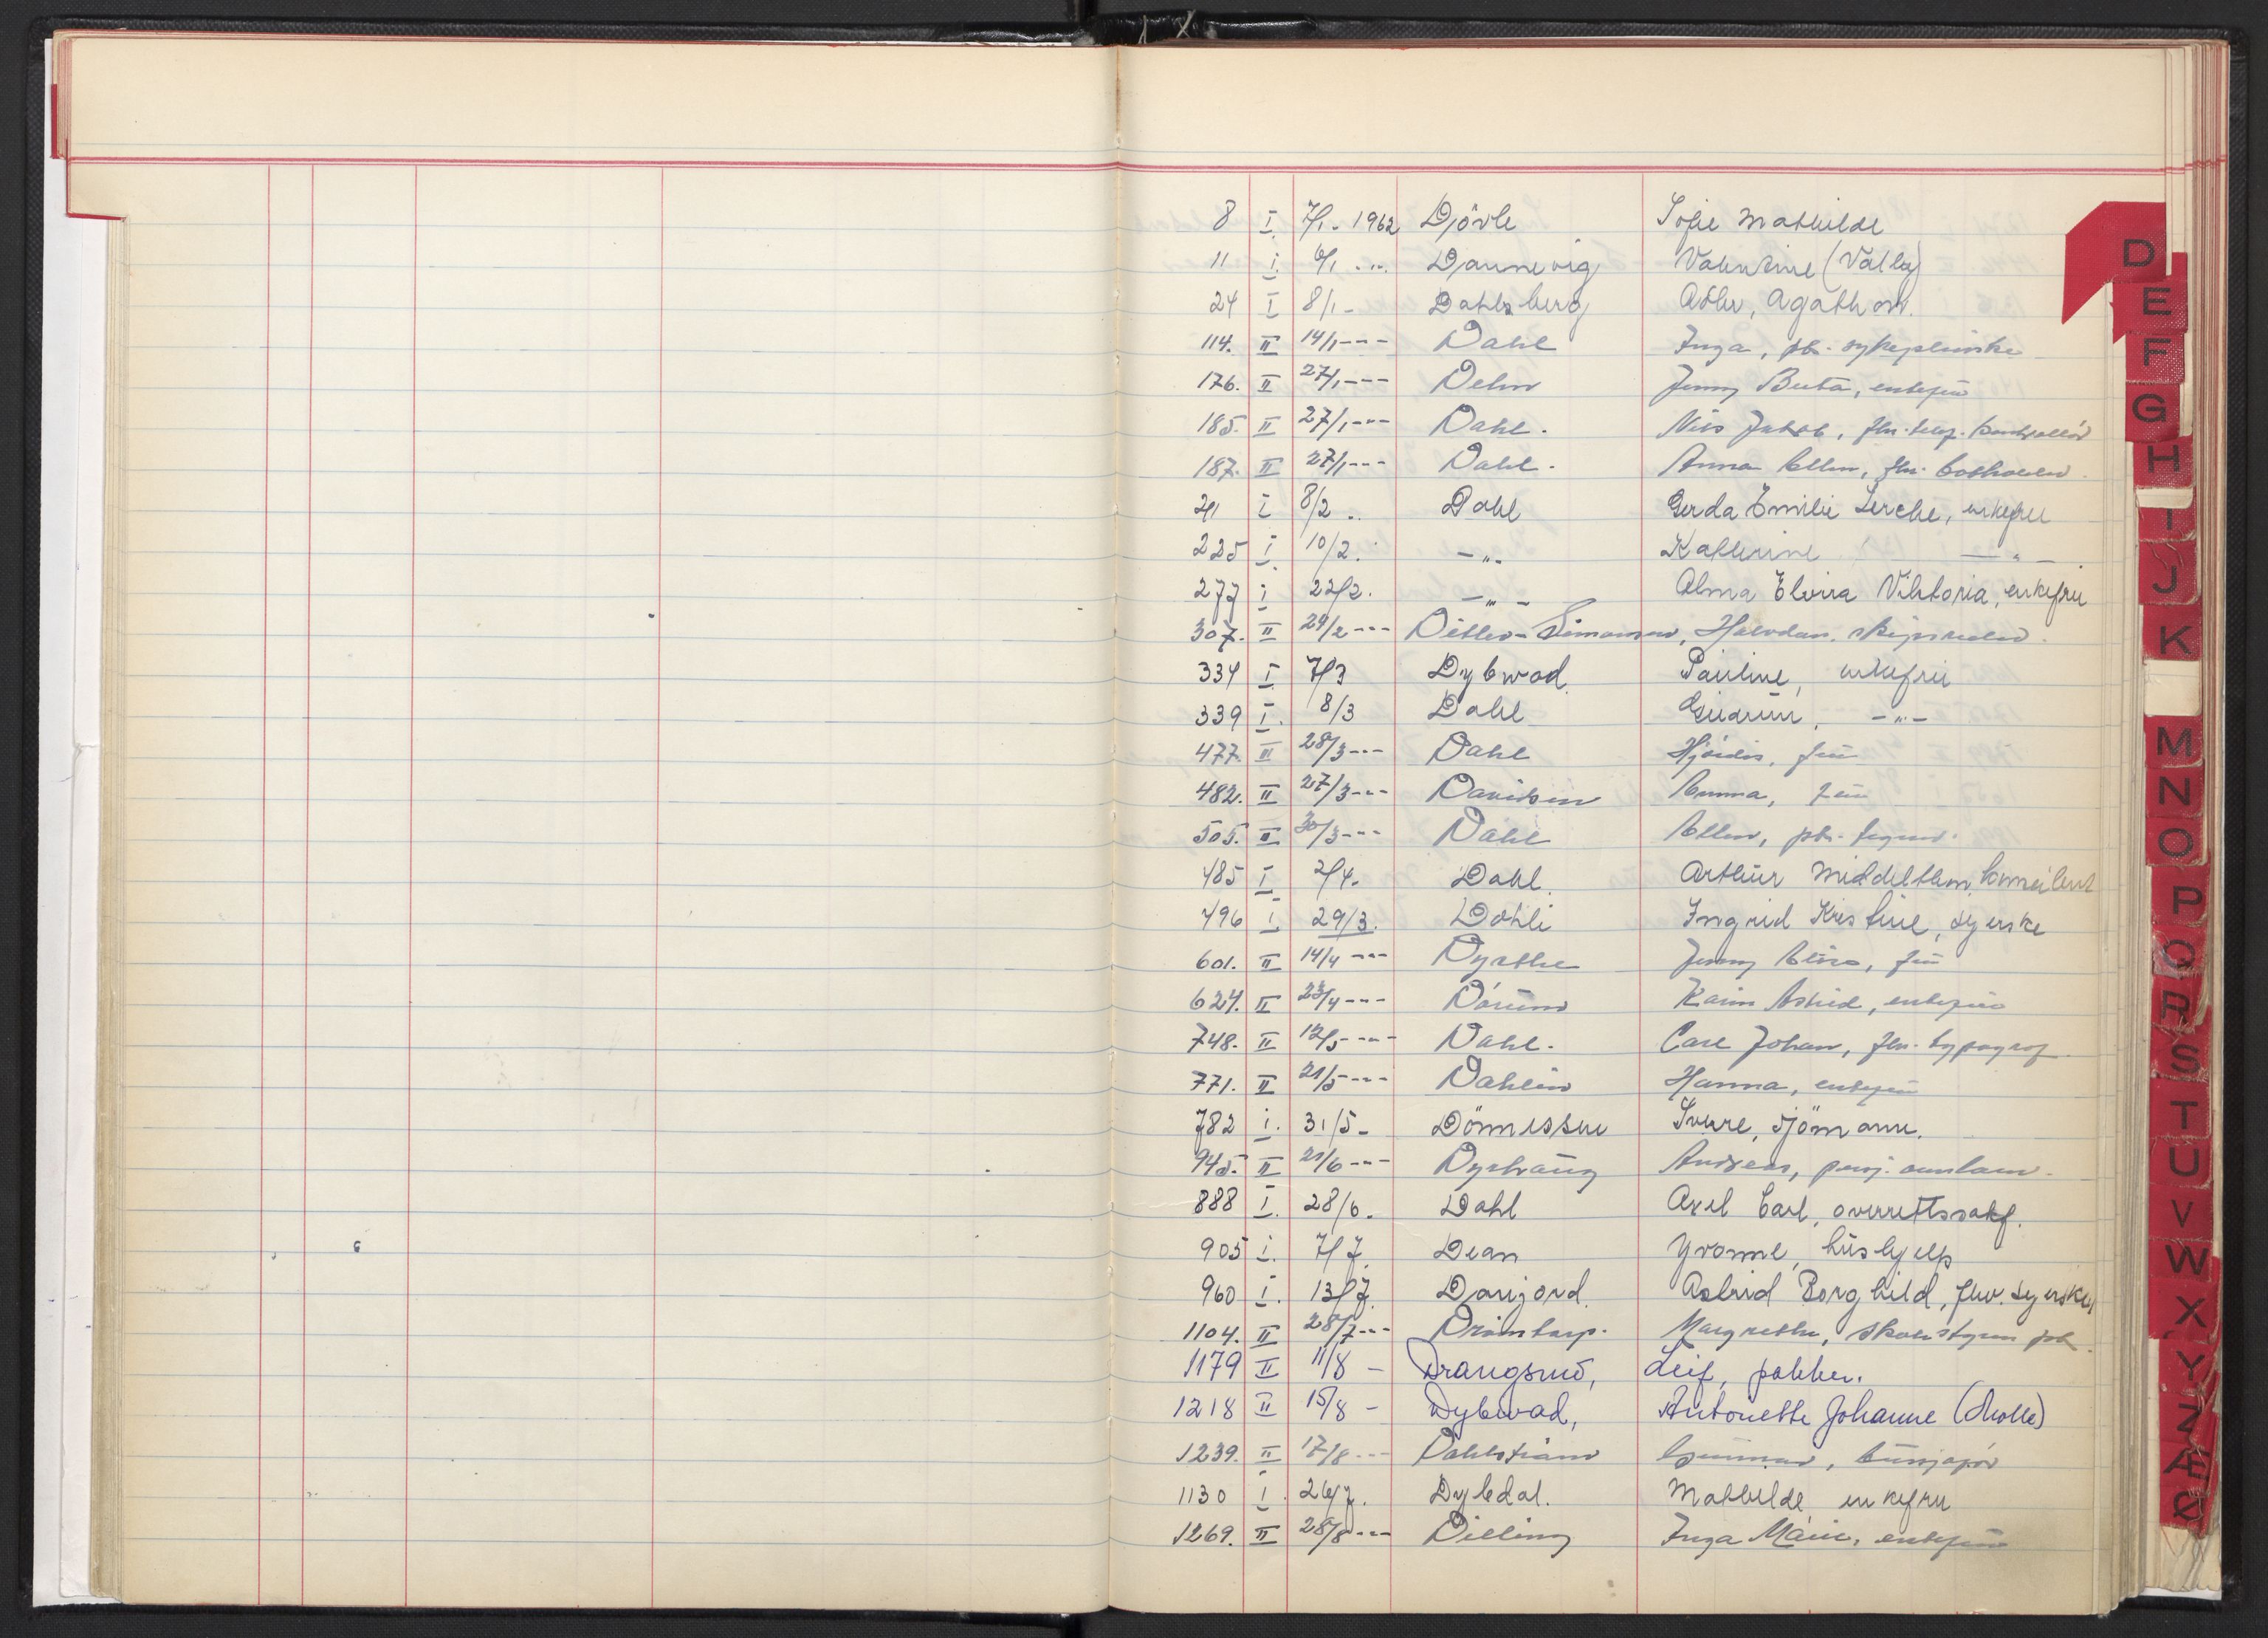 8 I. 7/1. 1962 Djövle Sofie Mathilde
11 I. 6/1 -"- Dannevig Valentine (Vally)
24 I 8/1 - Dahlsberg Adler, Agathon.
114. II 14/1 -"- Dahl Inga, ph. sykepleierske
176. II 27/1 -"- Dehn Jenny Berta, enkefru
185. II 27/1 -"- Dahl. Nils Jakob, fhv. telegr. kontrollör
187. II 27/1 -"- Dahl. Anna Ellen, fhv.
211 I 8/2 .. Dahl Gerda Emilie Lerche, enkefru
225 I. 10/2. -"- Katherine -"-
277 I 22/2. -"- Alma Elvira Viktoria, enkefru
307. II 29/2 -"- Ditlev-Simonsen, Halvdan, skipsreder.
334 I 7/3 Dybwad Pauline, enkefru
339 I. 8/3 Dahl Gudrun, -"-
477. II 28/3 -"- Dahl Hjördis, fru
482. II 27/3 -"- Davidsen Emma, fru
505. II 30/3 -"- Dahl Ellen, ph.
485 I 2/4. Dahl. Arthur Middelthon,
496 I. 29/3. Dahli Ingrid Kristine, syerske
601. II 14/4 -"- Dyrthe Jenny Elise, fru
624. II 23/4 -"- Dörum Karin Astrid, enkefru
748. II 12/5 -"- Dahl. Carl Johan, fhv. typograf
771. II 21/5 -"- Dahlin Hanna, enkefru
782 I. 31/5 - Dönnessen Sverre, sjömann.
945. II 21/6 -"- Dyrhaug Andreas, pensj.
888 I. 28/6. Dahl Axel Carl, overrettssakf.
905 I. 7/7. Dean Yvonne, hushjelp
960 I. 13/7. Danjord. Astrid Borghild, fhv. syerske
1104. II 28/7 -"- Drömtorp. Margrethe,
1179 II 11/8 - Drangsrud, Leif, pakker.
1218 II 15/8 - Dybwad, Antonette Johanne (Molle)
1239. II 17/8 -"- Dahlstrøm Gunnar,
1130 I. 26/7. Dybdal. Mathilde enkefru
1269. II 28/8 -"- Dilling Inga Marie, enkefru
D
E
F
G
H
I
J
K
M
N
O
P
Q
R
S
T
U
V
W
X
Y
Z
Æ
Ø